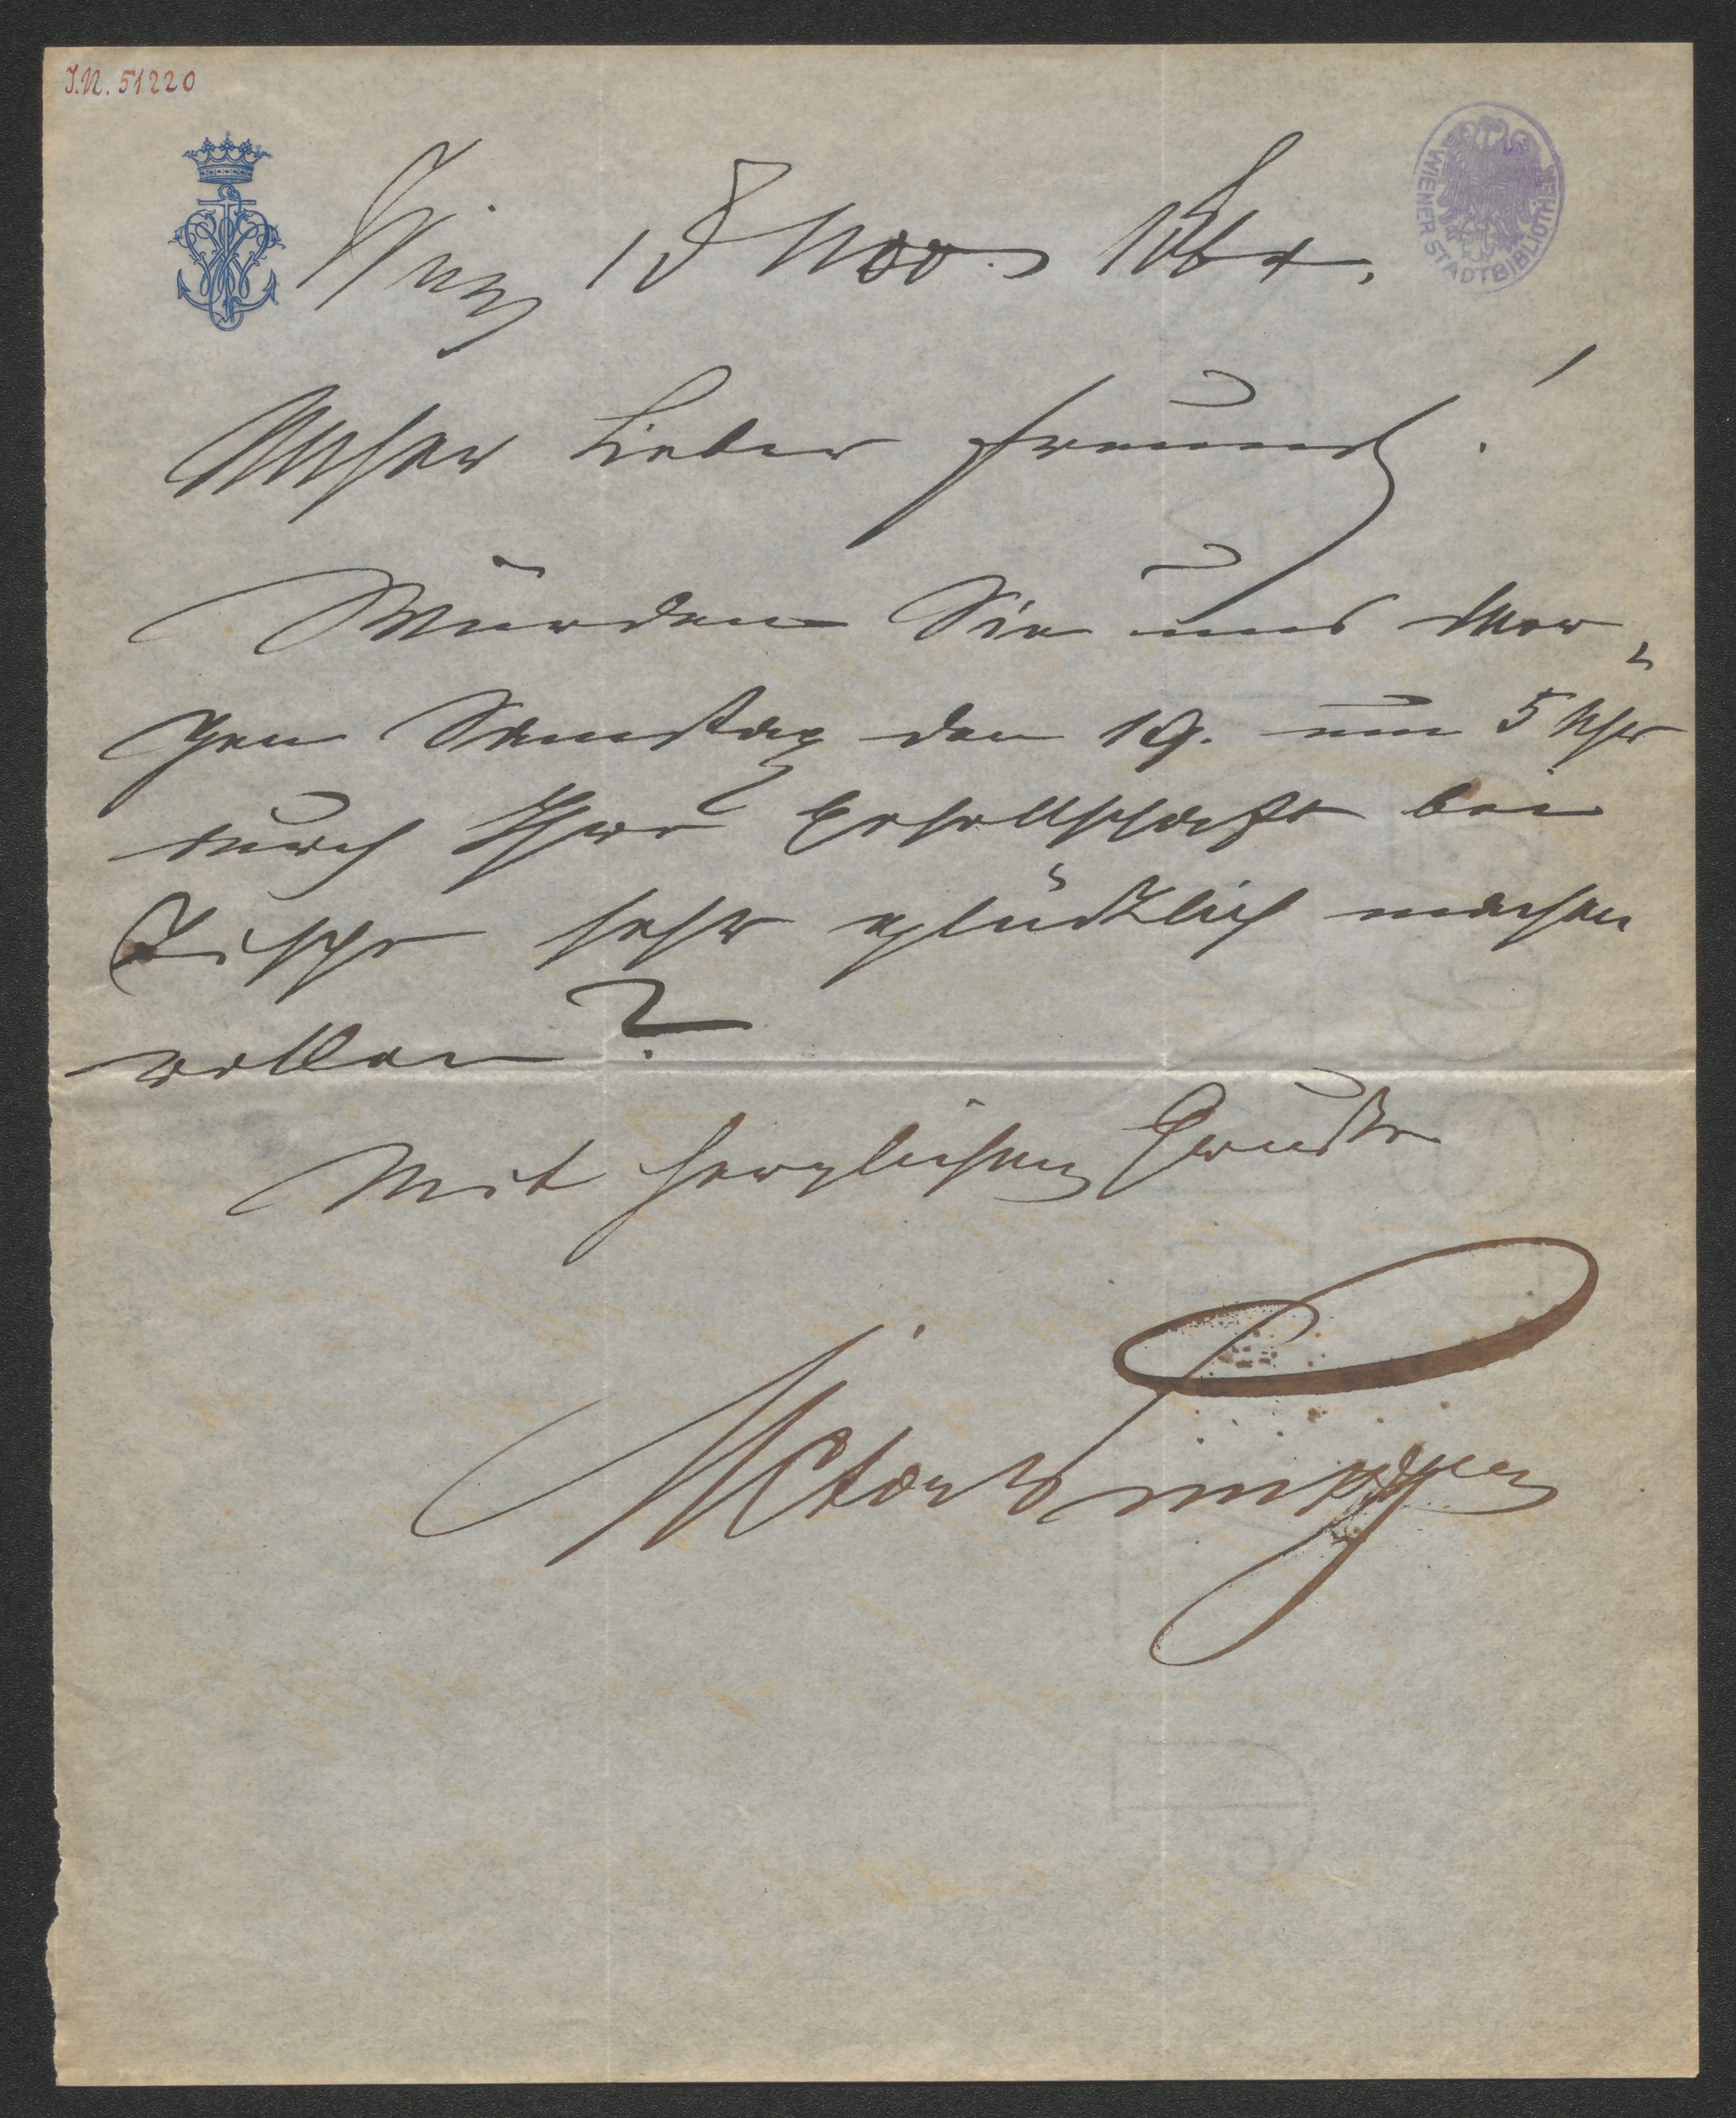 J.N. 51220
WIENER STADTBIBLIOTHEK
Wien 18 Nov. 1864.
Unser lieber Freund!
Würden Sie uns Mor=
gen Samstag den 19. um 5 Uhr
durch Ihre Gesellschaft bei
Tische sehr glücklich machen
wollen?
Mit herzlichem Gruße
Victor Wimpffen